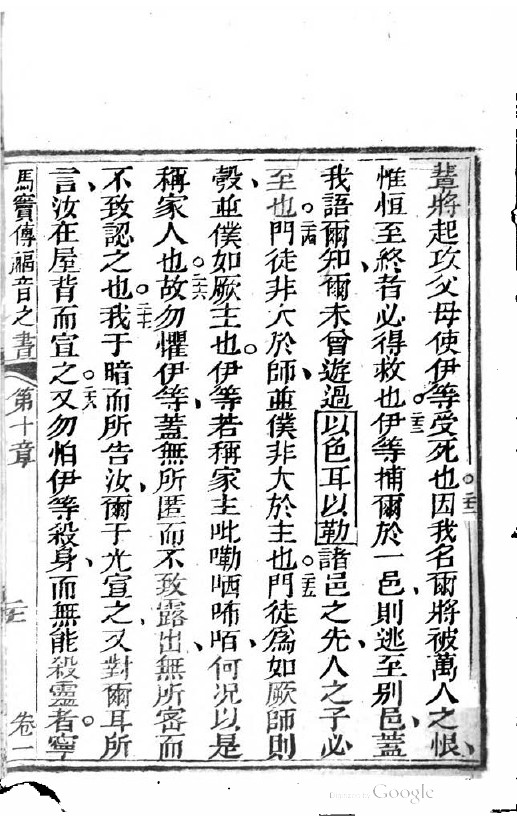 輩將起攻父母使伊等受死也。二二因我名爾將被萬人之恨、
惟恒至終者必得救也。二三伊等捕爾於一邑、則逃至别邑、蓋
我語爾知、爾未曾遊過以色耳以勒諸邑之先、人之子必
至也。二四門徒非大於師、並僕非大於主也。二五門徒為如厥師則
彀、並僕如厥主也。伊等若稱家主吡嘞哂咘咟、何況以是
稱家人也。二六故勿懼伊等、蓋無所匿而不致露出、無所密而
不致認之也。二七我于暗而所告汝、爾于光宣之、又對爾耳所
言、汝在屋背而宣之。二八又勿怕伊等殺身、而無能殺靈者。寧
馬竇傳福音之書 第十章 卷一
Digitized by Google